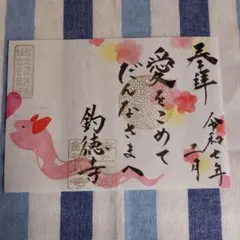 奉拝
令和七年
二月
愛をこめて
だんなさまへ
釣徳寺